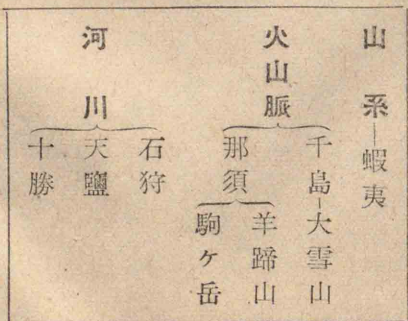 山系―蝦夷
火山脈
千島―大雪山
那須
羊蹄山
駒ヶ岳
河川
石狩
天鹽
十勝